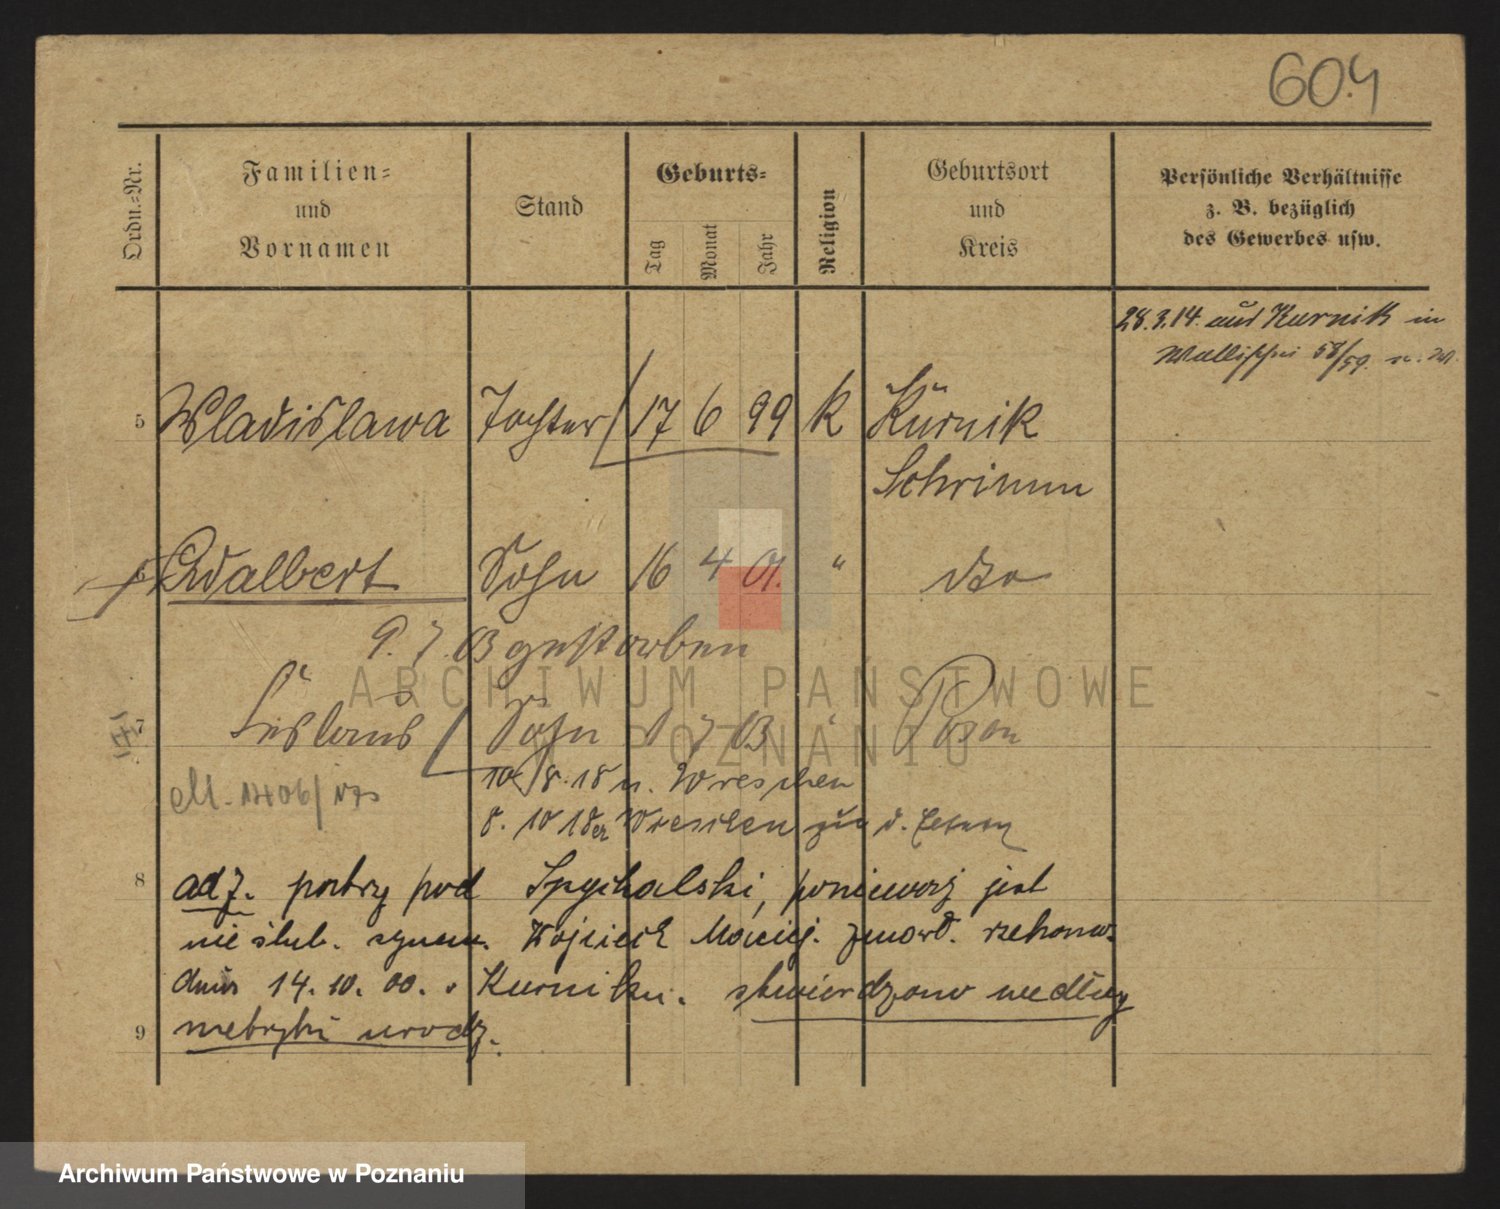 604
Ordn.-Nr.
Familien-
und
Vornamen
Stand
Geburts-
Tag
Monat
Jahr
Religion
Geburtsort
und
Kreis
Persönliche Verhältnisse
z. B. bezüglich
des Gewerbes usw.
28.3.14. aus Kurnik in
Wallischei 58/59.
5 Wladislawa Tochter 17 6 99 k Kurnik
Schrimm
6 Adalbert Sohn 16 4 01. " dto
9. 7. 03 gestorben
7 Sohn 1 7 03 " Posen
10/8.18 n. Wreschen
8. 10 18 Wreschen zu d.
8 ad 7. patrz pod Spychalski, ponieważ jest
nieślub. synem. Wojciech Maciej. zmarł. rzekomo
dnia 14. 10. 00. w Kurniku. stwierdzono według
9 metryki urodz.
ARCHIWUM PAŃSTWOWE
W POZNANIU
Archiwum Państwowe w Poznaniu